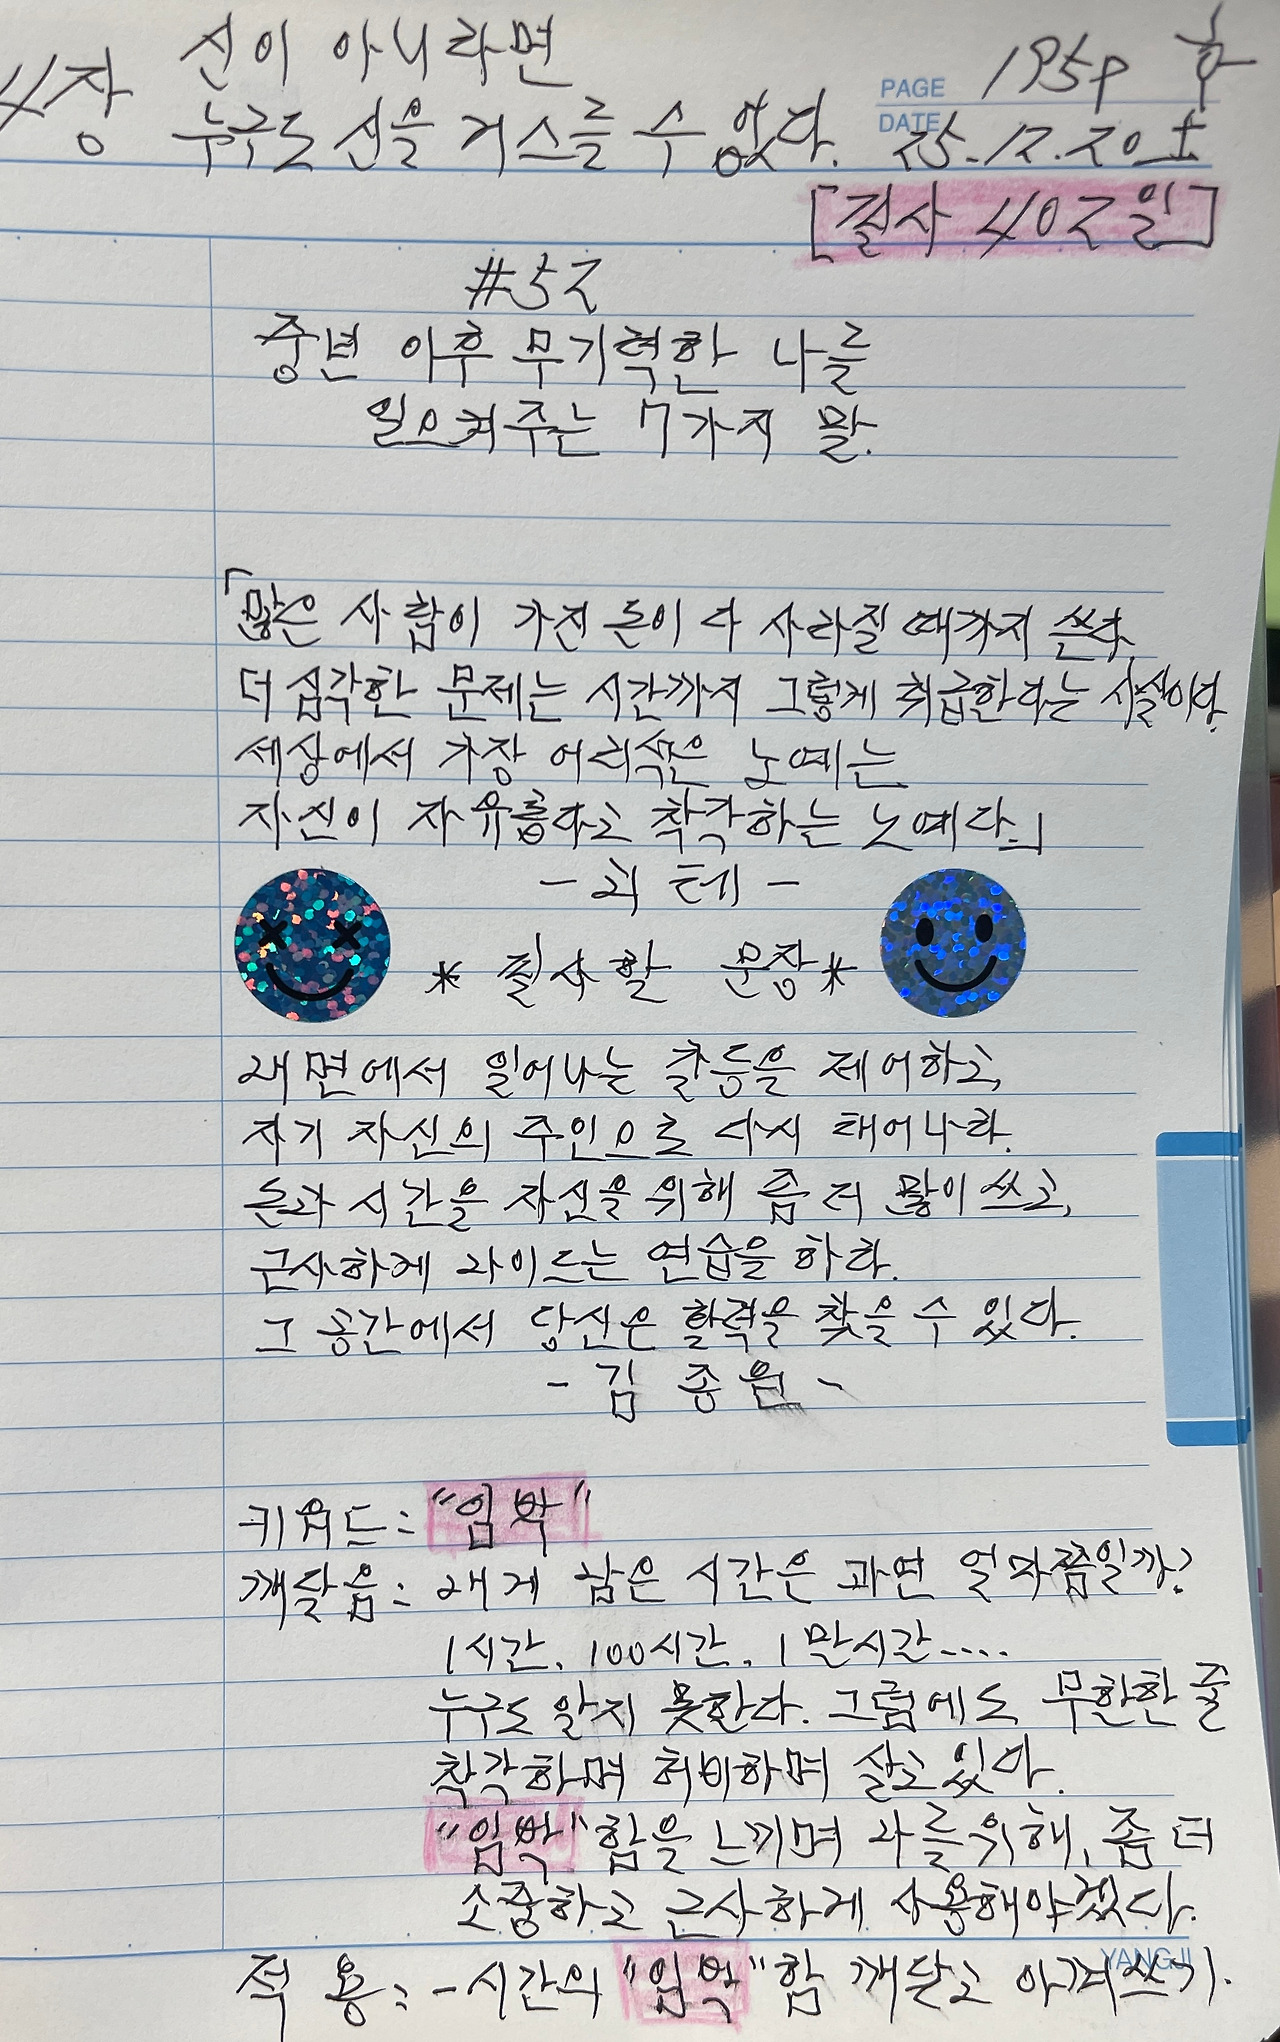 4장 신이 아니라면
누구도 신을 거스를 수 없다.
PAGE 195P 후
DATE 25.12.20 土
[필사 402일]
#52
중년 이후 무기력한 나를
일으켜주는 7가지 말.
「많은 사람이 가진 돈이 다 사라질 때까지 쓴다.
더 심각한 문제는 시간까지 그렇게 취급한다는 사실이다.
세상에서 가장 어리석은 노예는
자신이 자유롭다고 착각하는 노예다.」
- 괴테 -
* 필사할 문장 *
내면에서 일어나는 갈등을 제어하고,
자기 자신의 주인으로 다시 태어나라.
돈과 시간을 자신을 위해 좀 더 많이 쓰고,
근사하게 나이드는 연습을 하라.
그 공간에서 당신은 활력을 찾을 수 있다.
- 김종원 -
키워드: "임박"
깨달음: 내게 남은 시간은 과연 얼마쯤일까?
1시간, 100시간, 1만시간....
누구도 알지 못한다. 그럼에도 무한한 줄
착각하며 허비하며 살고 있다.
"임박"함을 느끼며 나를 위해, 좀 더
소중하고 근사하게 사용해야겠다.
YANGJI
적 용: - 시간의 "임박"함 깨닫고 아껴쓰기.